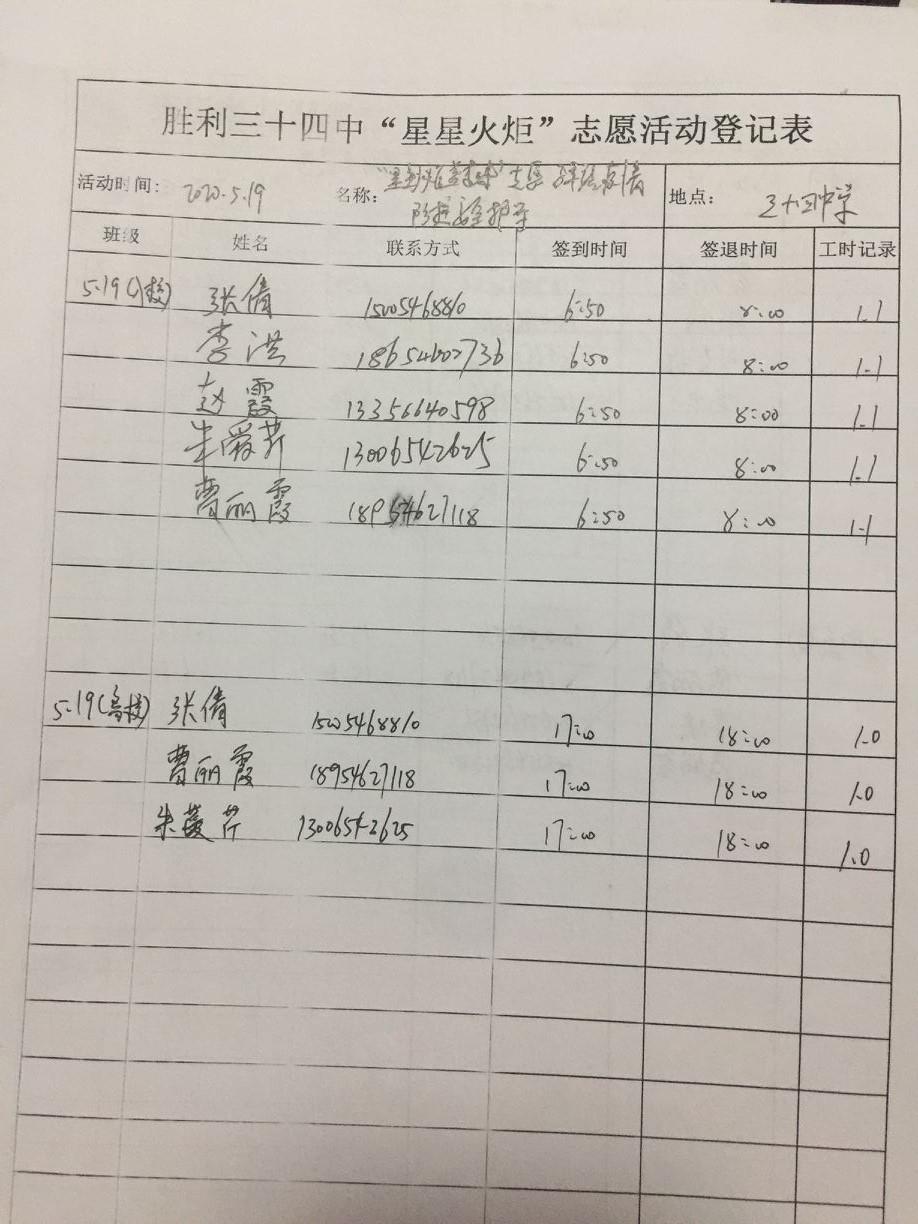 胜利三十四中“星星火炬”志愿活动登记表
活动时间: 2020.5.19 名称: 地点: 三十四中学
班级 姓名 联系方式 签到时间 签退时间 工时记录
5.19 张倩 15005468810 6:50 8:00 1.1
李洪 18654602736 6:50 8:00 1.1
赵霞 13356640598 6:50 8:00 1.1
朱爱芹 13006542625 6:50 8:00 1.1
曹丽霞 18954627118 6:50 8:00 1.1
5.19 张倩 15005468810 17:00 18:00 1.0
曹丽霞 18954627118 17:00 18:00 1.0
朱爱芹 13006542625 17:00 18:00 1.0